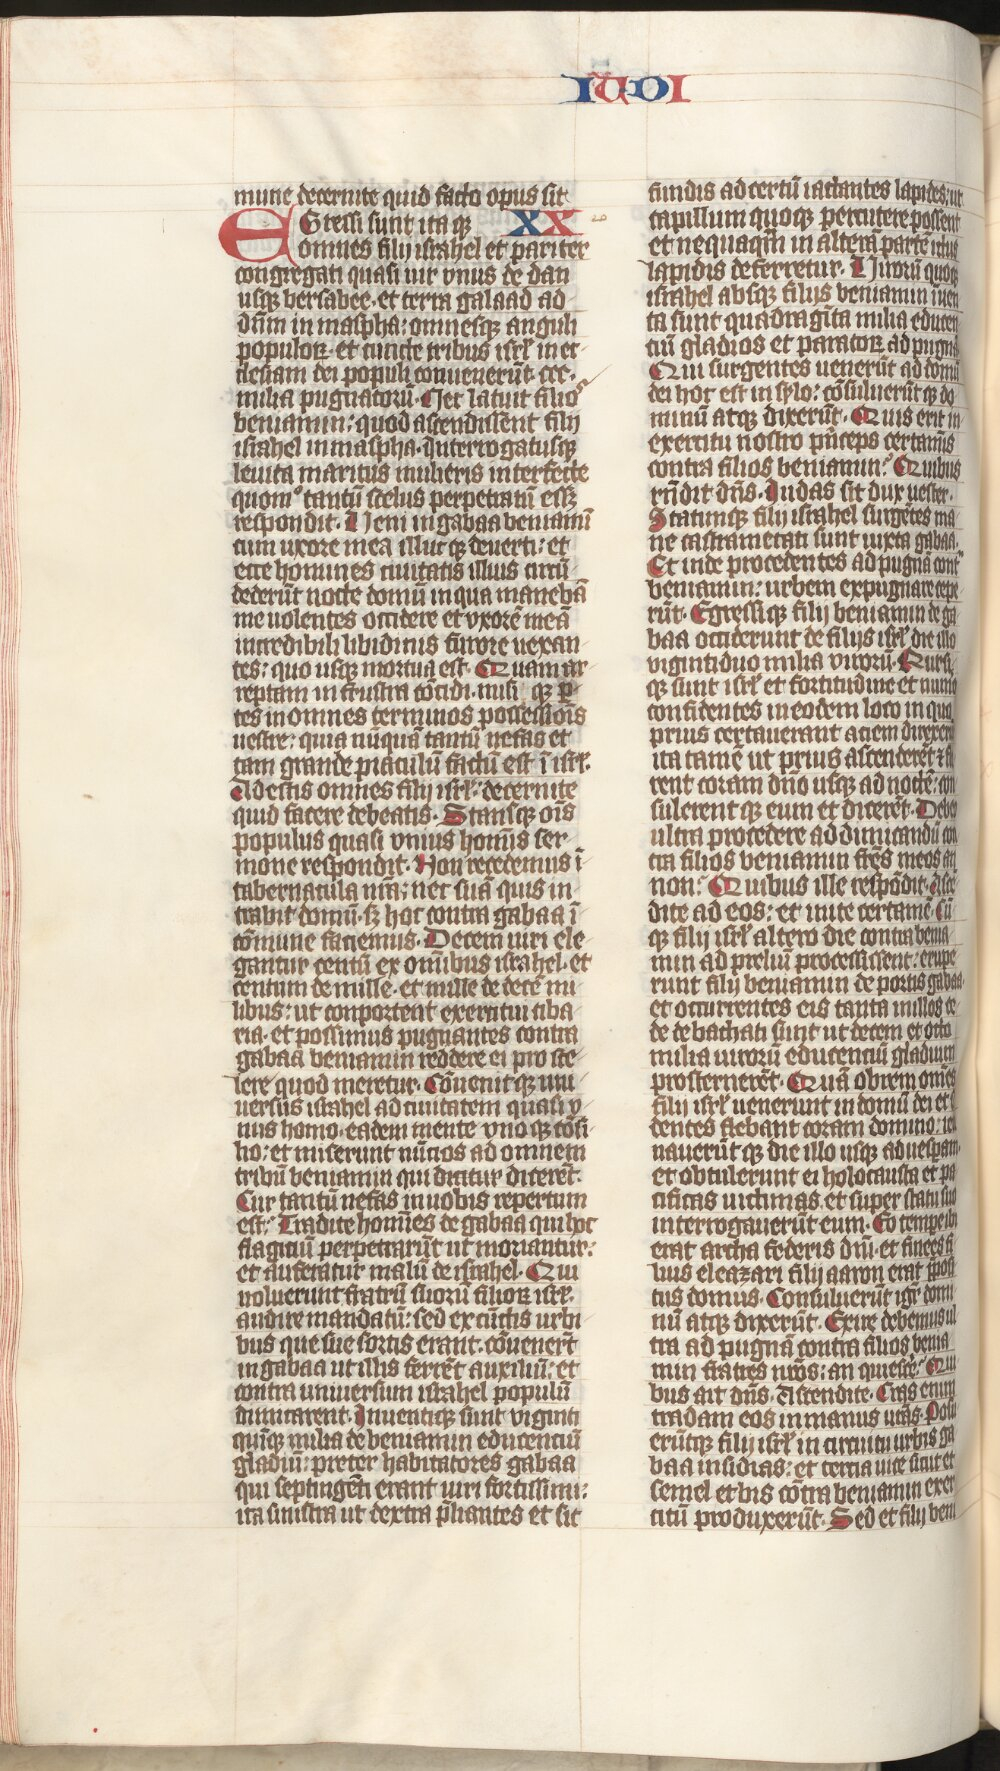 IUDI
mune decernite quid facto opus sit
Egressi sunt itaqꝫ XX
omnes filij israhel et pariter
congregati quasi uir vnus de dan
usqꝫ bersabee. et terra galaad ad
dn̄m in maspha: omnesqꝫ anguli
populoꝝ. et cūcte tribus isrl̄ in ec
clesiam dei populi convenerūt. ccc.
milia pugnatorū. Nec latuit filios
beniamin: quod ascendissent filij
israhel in maspha. Interrogatusqꝫ
leuita maritus mulieris interfecte
quomᵒ tantū scelus perpetratū essꝫ
respondit. Veni in gabaa beniamī
cum uxore mea illucqꝫ deuerti: et
ecce homines ciuitatis illius circū
dederūt nocte domū in qua manebā
me uolentes occidere et vxorē meā
incredibili libidinis furore uexan
tes: quo usqꝫ mortua est. Quam ar
reptam in frustra cōcidi. misiqꝫ p̄
tes in omnes terminos possessiōis
uestre: quia nūquā tantū nefas et
tam grande piaculū factū est ī isrl̄.
Adestis omnes filij isrl̄: decernite
quid facere debeatis. Stansqꝫ oīs
populus quasi vnius homīs ser
mone respondit. Non recedemus ī
tabernacula nr̄a: nec suā quis in
trabit domū. sꝫ hoc contra gabaa ī
cōmune faciemus. Decem uiri ele
gantur centū ex omībus israhel. et
centum de mille. et mille de decē mi
libus: ut conporteāt exercitui ciba
ria. et possimus pugnantes contra
gabaa beniamin reddere ei pro sce
lere quod meretur. Cōuenitqꝫ uni
uersus israhel ad ciuitatem quasi v
nus homo. eadem mente vnoqꝫ cōsi
lio: et miserunt nūcios ad omnem
tribū beniamin qui diceret. dicerēt.
Cur tantū nefas in uobis repertum
est: Tradite homīes de gabaa qui hoc
flagitiū perpetrarūt ut moriantur:
et auferatur malū de israhel. Qui
noluerunt fratrū suorū filioꝝ isrl̄.
audire mandatū: sed ex cūctis urbi
bus que sue sortis erant. cōuenerūt
in gabaa ut illis ferrēt auxiliū: et
contra uniuersum israhel populū
dimicarent. Inuentiqꝫ sunt viginti
quīqꝫ milia de beniamin educentiū
gladiū: preter habitatores gabaa
qui septingēti erant uiri fortissimi:
ita sinistra ut dextra p̄liantes et sic
fundis ad certū iactantes lapides: ut
capillum quoqꝫ percutere possent
et nequaqm̄ in alterā parte ictus
lapidis deferretur. Virorū quoqꝫ
israhel absqꝫ filijs beniamin īuen
ta sunt quadragīta milia educen
tiū gladios et paratoꝝ ad pugnā
Qui surgentes uenerūt ad domū
dei hoc est in sylo: cōsuluerūtqꝫ do
minū atqꝫ dixerūt. Quis erit in
exercitu nostro p̄nceps certamis
contra filios beniamin? Quibus
rn̄dit dn̄s. Iudas sit dux uester.
Statimqꝫ filij israhel surgētes ma
ne castrametati sunt iuxta gabaa.
Et inde procedentes ad pugnā cont
beniamin: urbem expugnare cepe
rūt. Egressiqꝫ filij beniamin de ga
baa occiderunt de filijs isrl̄ die illo
viginti duo milia virorū. Rursū
qꝫ sunt isrl̄ et fortitudine et num̄o
confidentes in eodem loco in quo
prius certauerant aciem direxerūt
ita tamē ut prius ascenderēt: et fle
rent coram dn̄o usqꝫ ad noctē: con
sulerentqꝫ eum et dicerēt. Debeo
ultra procedere ad dimicandū con
tra filios beniamin fr̄es meos an
non: Quibus ille respōdit. Asce
dite ad eos: et inite certamē. Cū
qꝫ filij isrl̄ altero die contra benia
min ad preliū processissent: erupe
runt filij beniamin de portis gabaa.
et occurrentes eis tanta in illos ce
de debachati sunt ut decem et octo
milia uirorū educenciū gladium
prosternerēt. Quā obrem om̄es
filij isrl̄ uenerunt in domū dei et se
dentes flebant coram domino: iei
unauerūtqꝫ die illo usqꝫ ad uesperam.
et obtulerunt ei holocausta et pa
cificas uictimas. et super statu suo
interrogauerūt eum. Eo tempe ibi
erat archa federis dn̄i. et finees fi
lius eleazari filij aaron erat p̄posi
tus domus. Consuluerūt igr̄ domi
nū atqꝫ dixerūt. Exire debemus ul
tra ad pugnā contra filios benia
min fratres nr̄os: an quiescē? Qui
bus ait dn̄s. Ascendite. Cras enim
tradam eos in manus ur̄as. Posu
erūtqꝫ filij isrl̄ in circuitu urbis ga
baa insidias: et tercia uice sicut et
semel et bis cōtra beniamin exer
citū produxerūt. Sed et filij beni